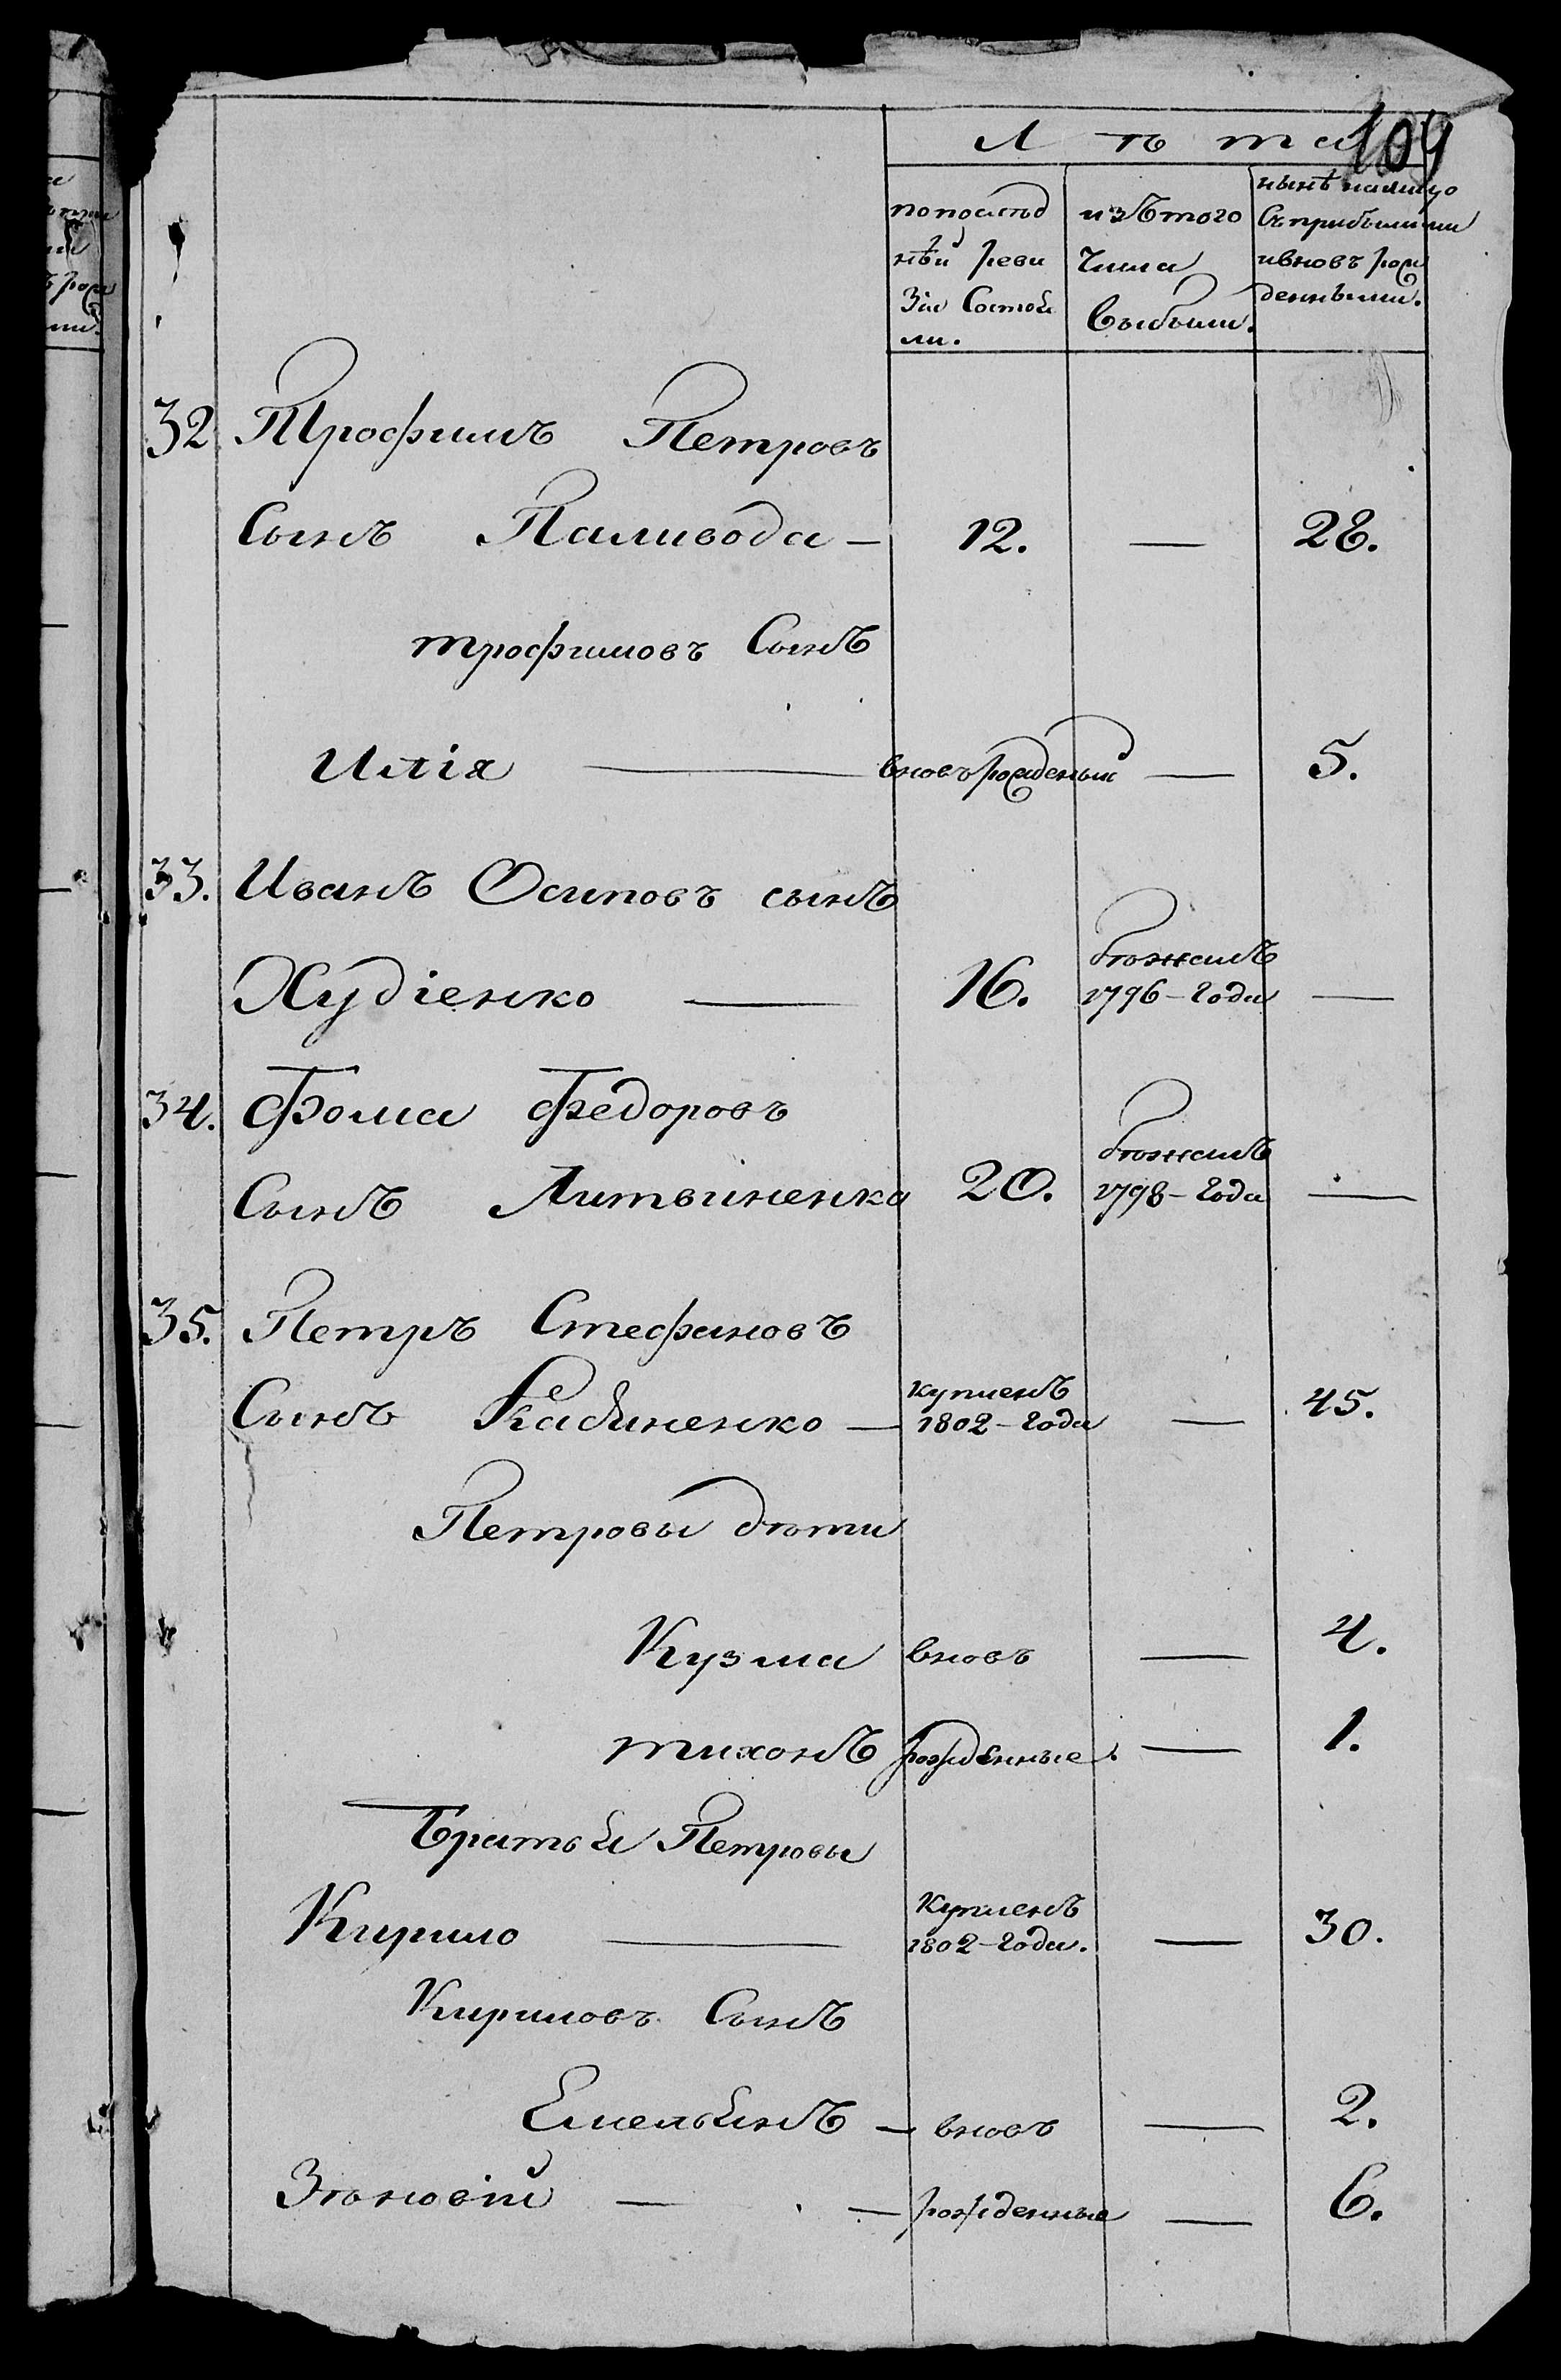 109
Лѣта
по послѣд
нѣй реви
зіи Состоя
ли.
изъ того
числа
выбыли.
нынѣ налицо
съ прибылыми
и вновь рож
денными.
32 Трофимъ Петровъ
Сынъ Паливода — 12. — 28.
трофимовъ Сынъ
Илія — вновь рожденый — 5.
33. Иванъ Осиповъ сынъ
Худіенко — 16. бѣжалъ 1796-года —
34. Фома Федоровъ
Сынъ Литвиненко 20. бѣжалъ 1798-года —
35. Петръ Стефановъ
Сынъ Кабиненко — купленъ 1802-года — 45.
Петровы дѣти
Кузма вновь — 4.
тихонъ рожденные. — 1.
Братья Петровы
Кирило — купленъ 1802-года. — 30.
Кириловъ Сынъ
Емельянъ — вновь — 2.
Зѣновій — рожденные — 6.